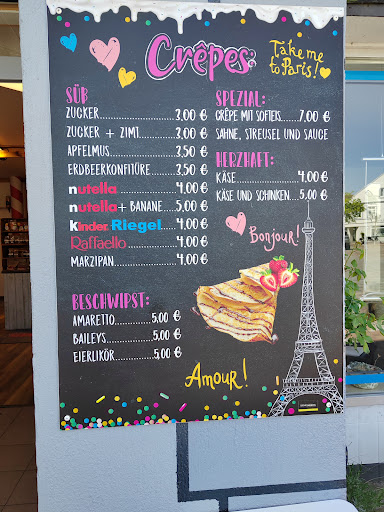 Crêpes
Take me
to Paris!
SÜB
ZUCKER 3,00 €
ZUCKER + ZIMT 3,00 €
APFELMUS 3,50 €
ERDBEERKONFITÜRE 3,50 €
nutella 4,00 €
nutella + BANANE 5,00 €
Kinder Riegel 4,00 €
Raffaello 4,00 €
MARZIPAN 4,00 €
BESCHWIPST:
AMARETTO 5,00 €
BAILEYS 5,00 €
EIERLIKÖR 5,00 €
SPEZIAL:
CRÊPE MIT SOFTEIS 7,00 €
SAHNE, STREUSEL UND SAUCE
HERZHAFT:
KÄSE 4,00 €
KÄSE UND SCHINKEN 5,00 €
Bonjour!
Amour!